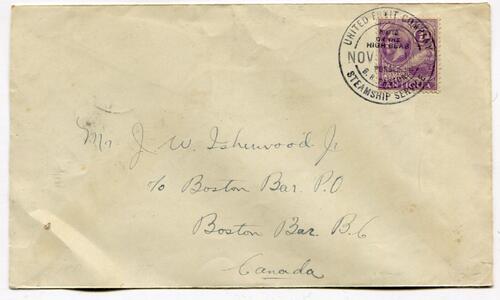 UNITED FRUIT COMPANY
HIGH SEAS
NOV
STEAMSHIP SERVICE
Mr J. W. Isherwood Jr.
c/o Boston Bar. P.O
Boston Bar. B.C
Canada